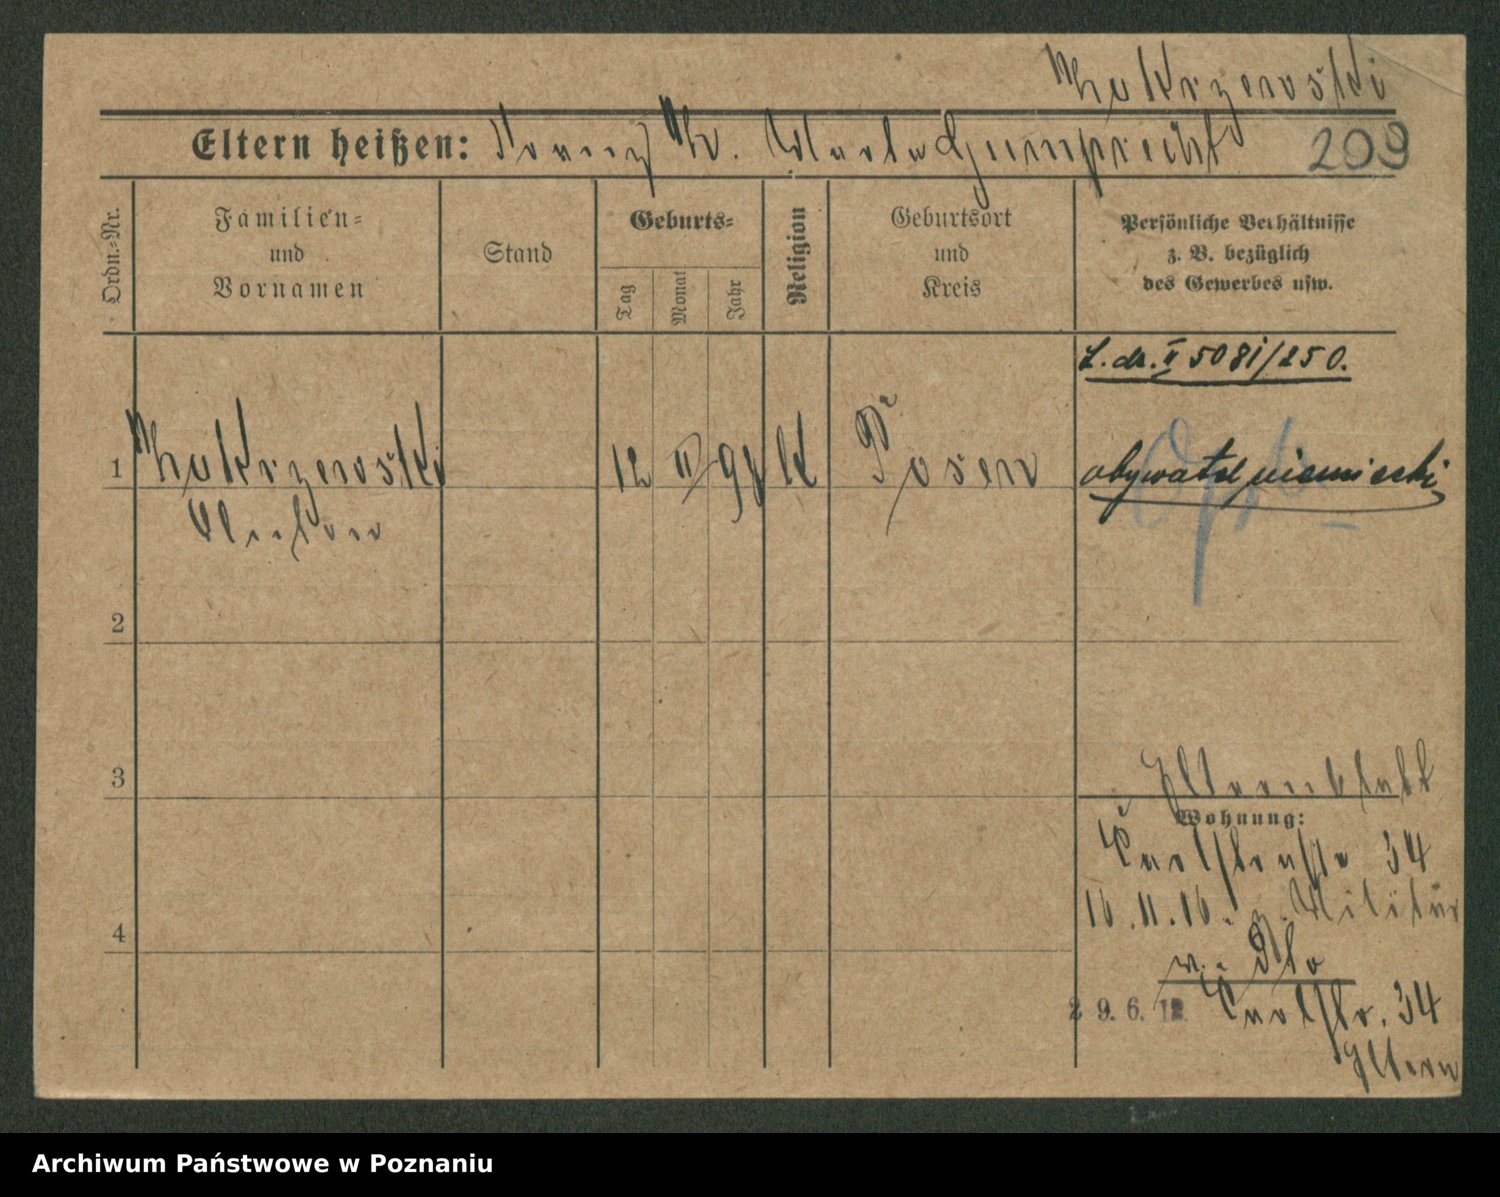 Mukrzewski
Eltern heißen: Franz M. Marta Gumprecht
209
Ordn.=Nr.
Familien=
und
Vornamen
Stand
Geburts=
Tag
Monat
Jahr
Religion
Geburtsort
und
Kreis
Persönliche Verhältnisse
z. B. bezüglich
des Gewerbes usw.
L. dz. II 5081/250.
1
Mukrzewski
12 II 98 K Posen
obywatel niemiecki
2
3
4
Elternblatt
Wohnung:
34
16. 11. 16. z. Militär
v.
29. 6. 12 34
Eltern
Archiwum Państwowe w Poznaniu